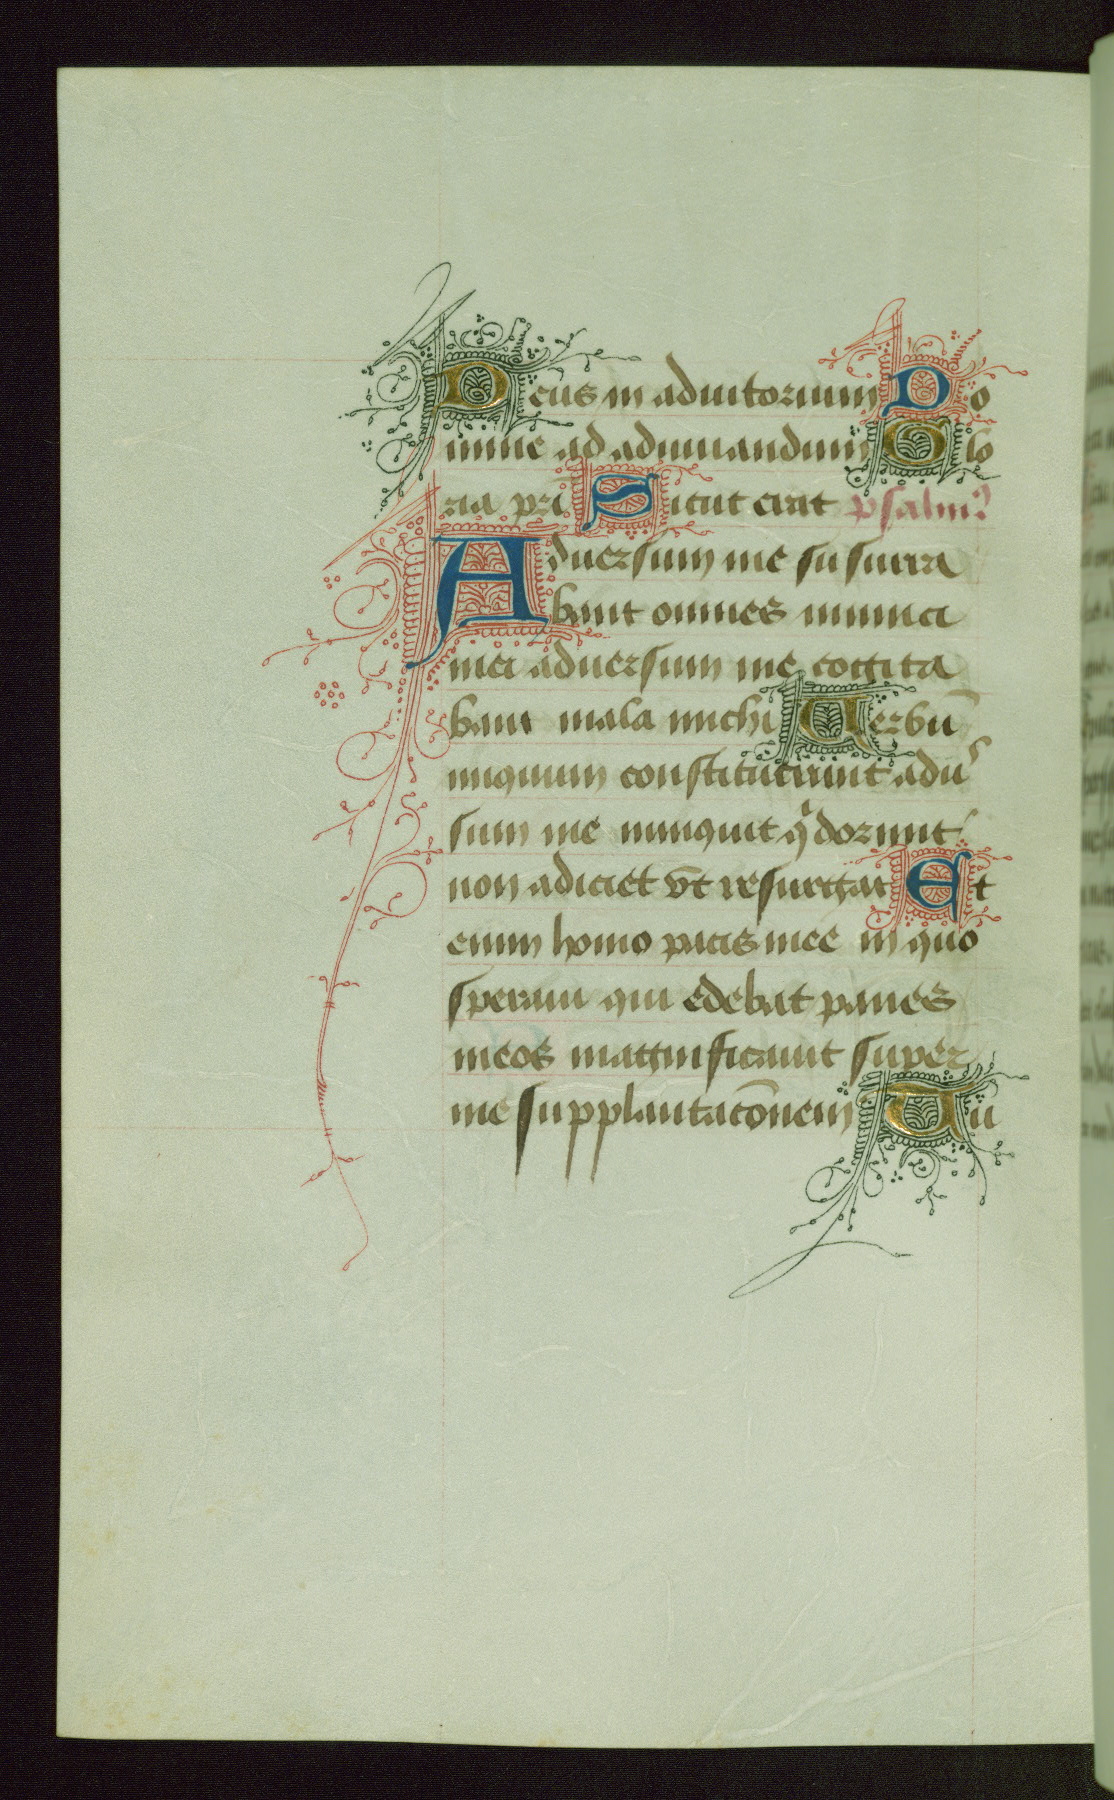 Deus in adiutorium Do
mine ad adiuuandum Glo
ria pri Sicut erat psalm⁹
Aduersum me susurra
bant omnes inimici
mei aduersum me cogita
bant mala michi Uerbū
iniquum constituerunt adu͛
sum me nunquit q̇ dormit
non adiciet vt resurgat Et
enim homo pacis mee in quo
speraui qui edebat panes
meos magnificauit super
me supplantacōnem Tu